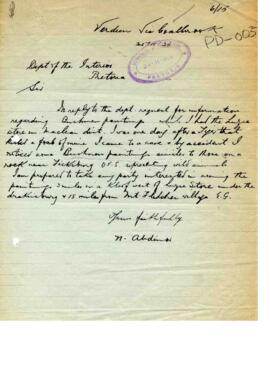 6/15
PD-005
Dept of the Interior
Pretoria
Sir
In reply to the dept request for information
regarding Bushman paintings which I had the
store in Maclear dist. I was one day after a Tiger that
killed a foal of mine I came to a cave & by accident I
noticed some Bushman paintings similar to those on a
rock near Ficksburg O F S representing wild animals
I am prepared to take any party interested in seeing the
paintings 3 miles in a Kloof west of Store under the
drakensburg & 18 miles from Mt Fletcher village E.G.
Yours faithfully
N. Abdinor